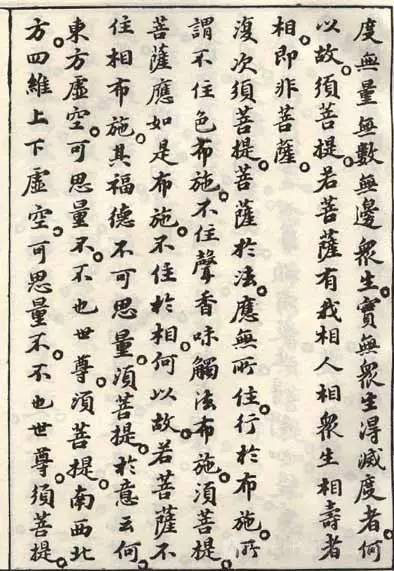 度無量無數無邊衆生實無衆生得滅度者何
以故須菩提若菩薩有我相人相衆生相壽者
相即非菩薩
復次須菩提菩薩於法應無所住行於布施所
謂不住色布施不住聲香味觸法布施須菩提
菩薩應如是布施不住於相何以故若菩薩不
住相布施其福德不可思量須菩提於意云何
東方虛空可思量不不也世尊須菩提南西北
方四維上下虛空可思量不不也世尊須菩提